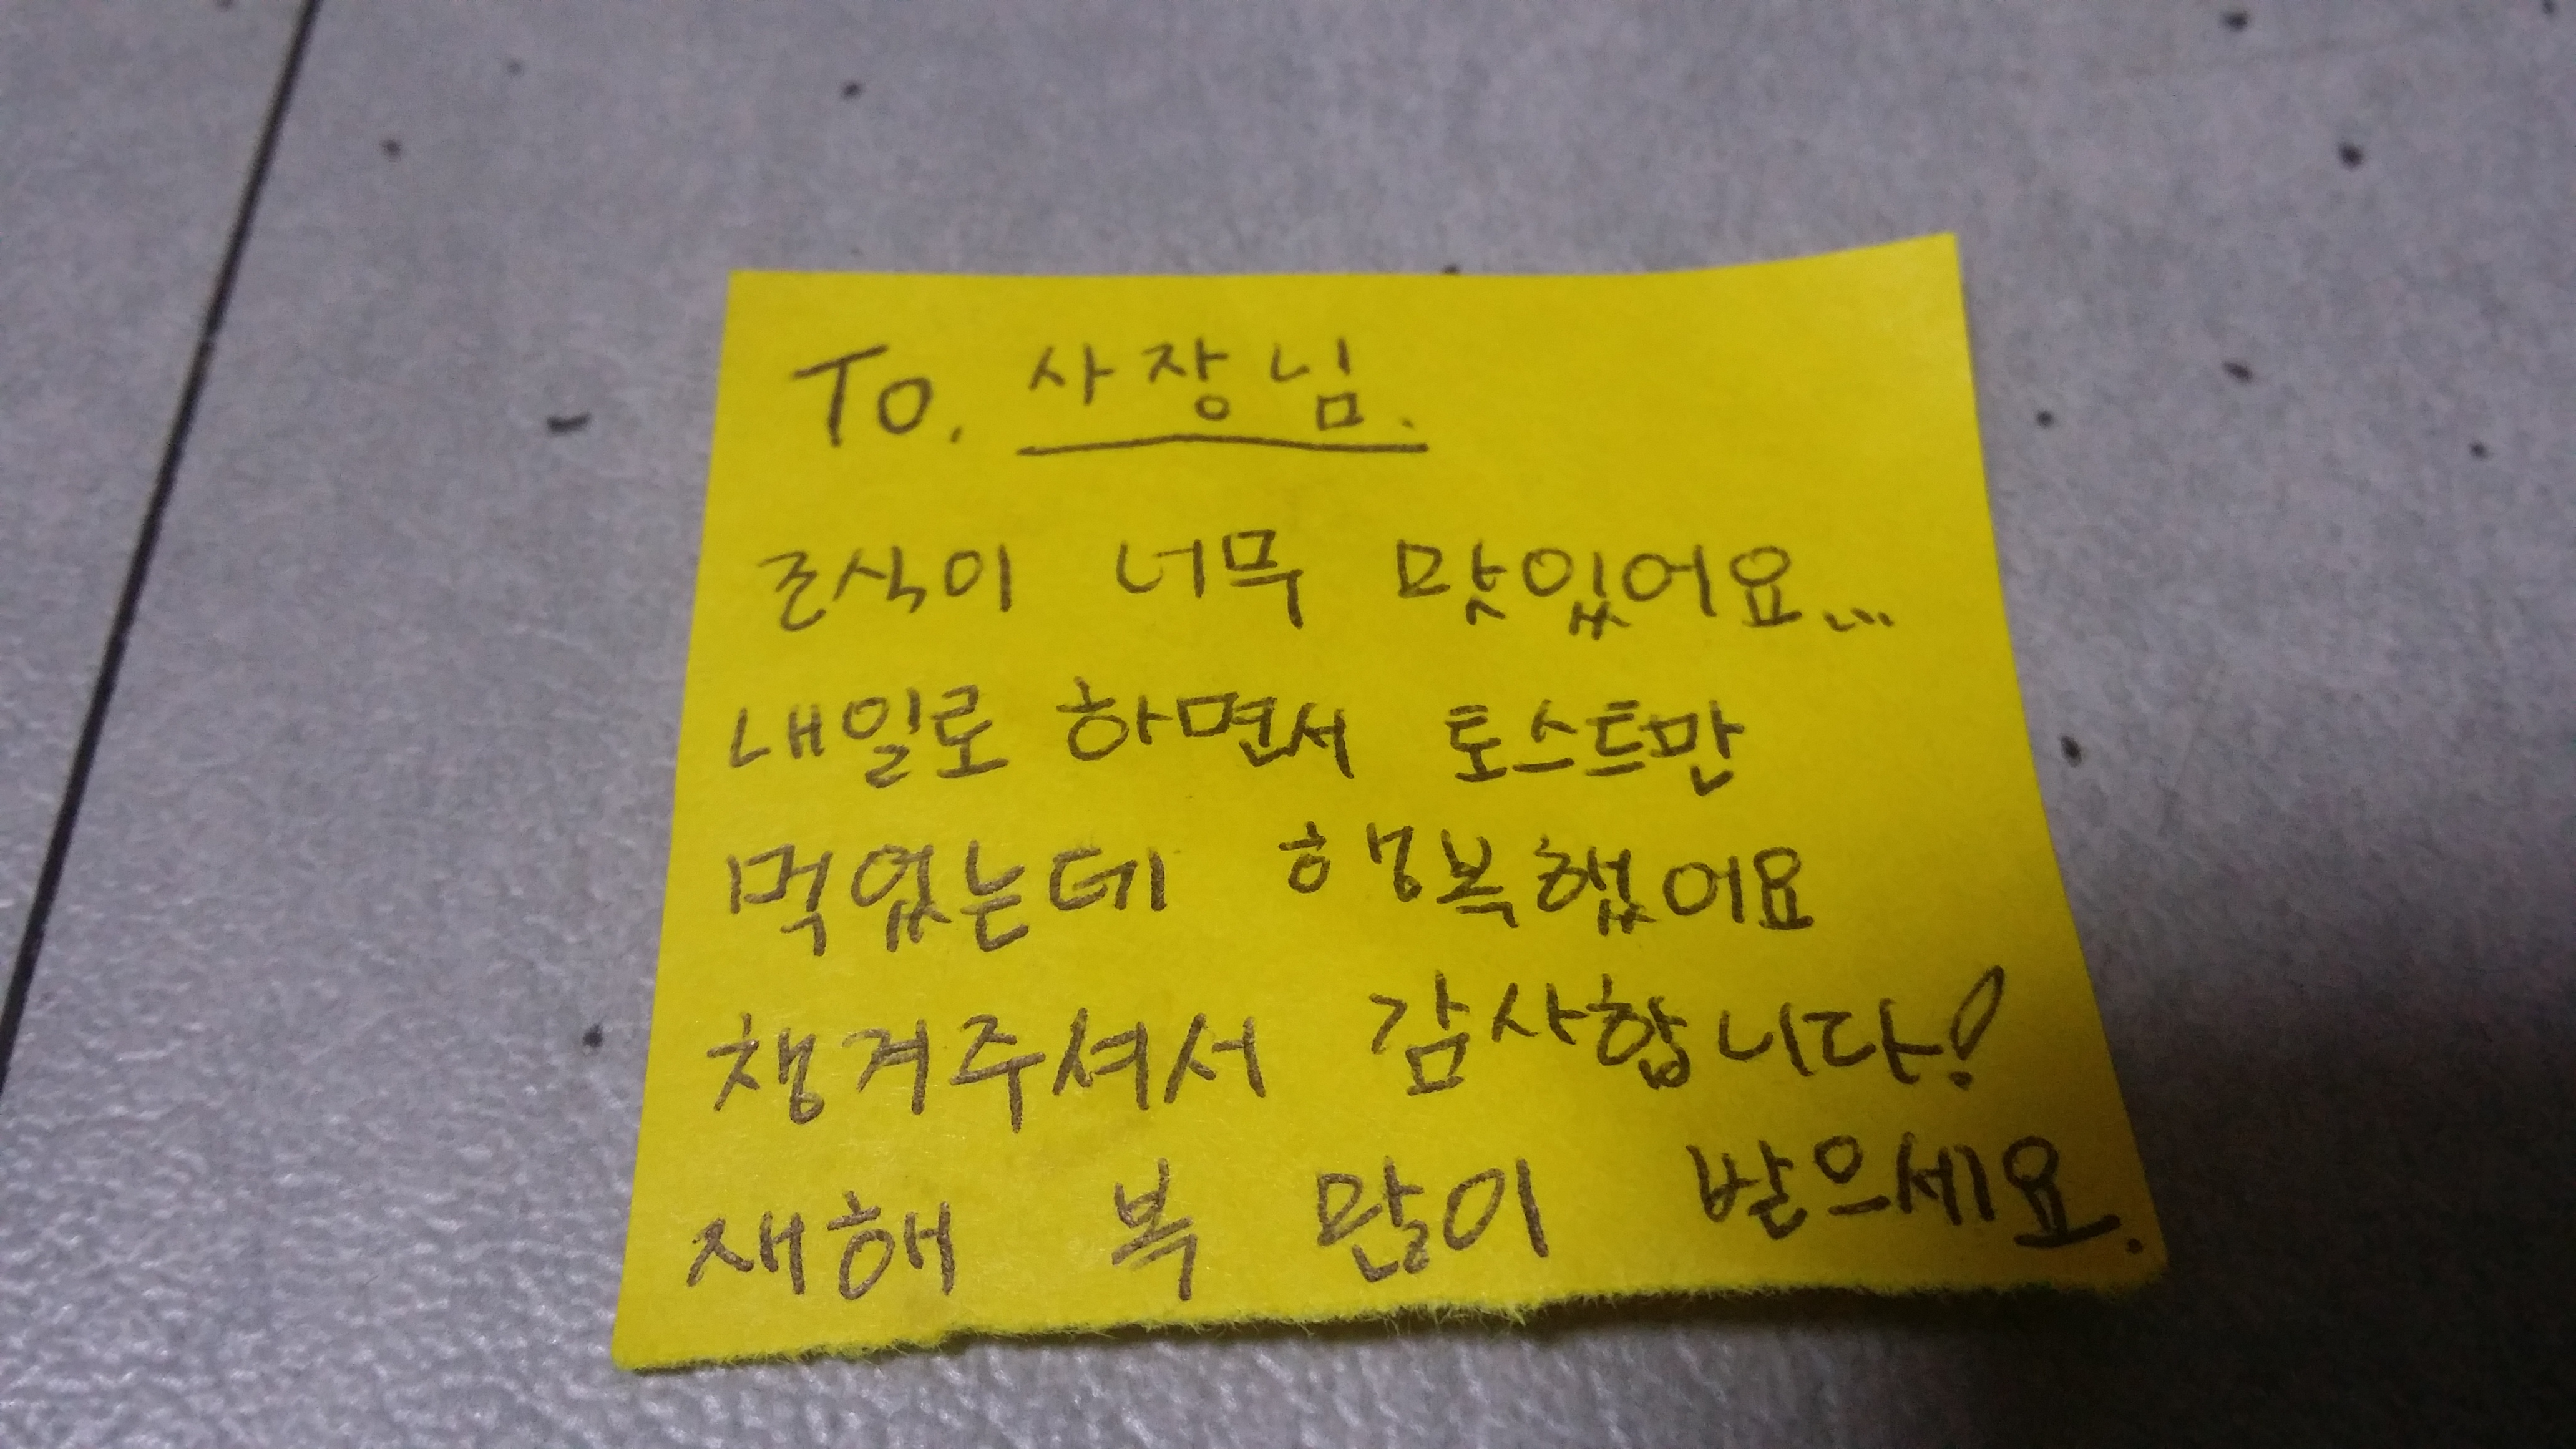 To. 사장님.
조식이 너무 맛있어요...
내일로 하면서 토스트만
먹었는데 행복했어요
챙겨주셔서 감사합니다!
새해 복 많이 받으세요.